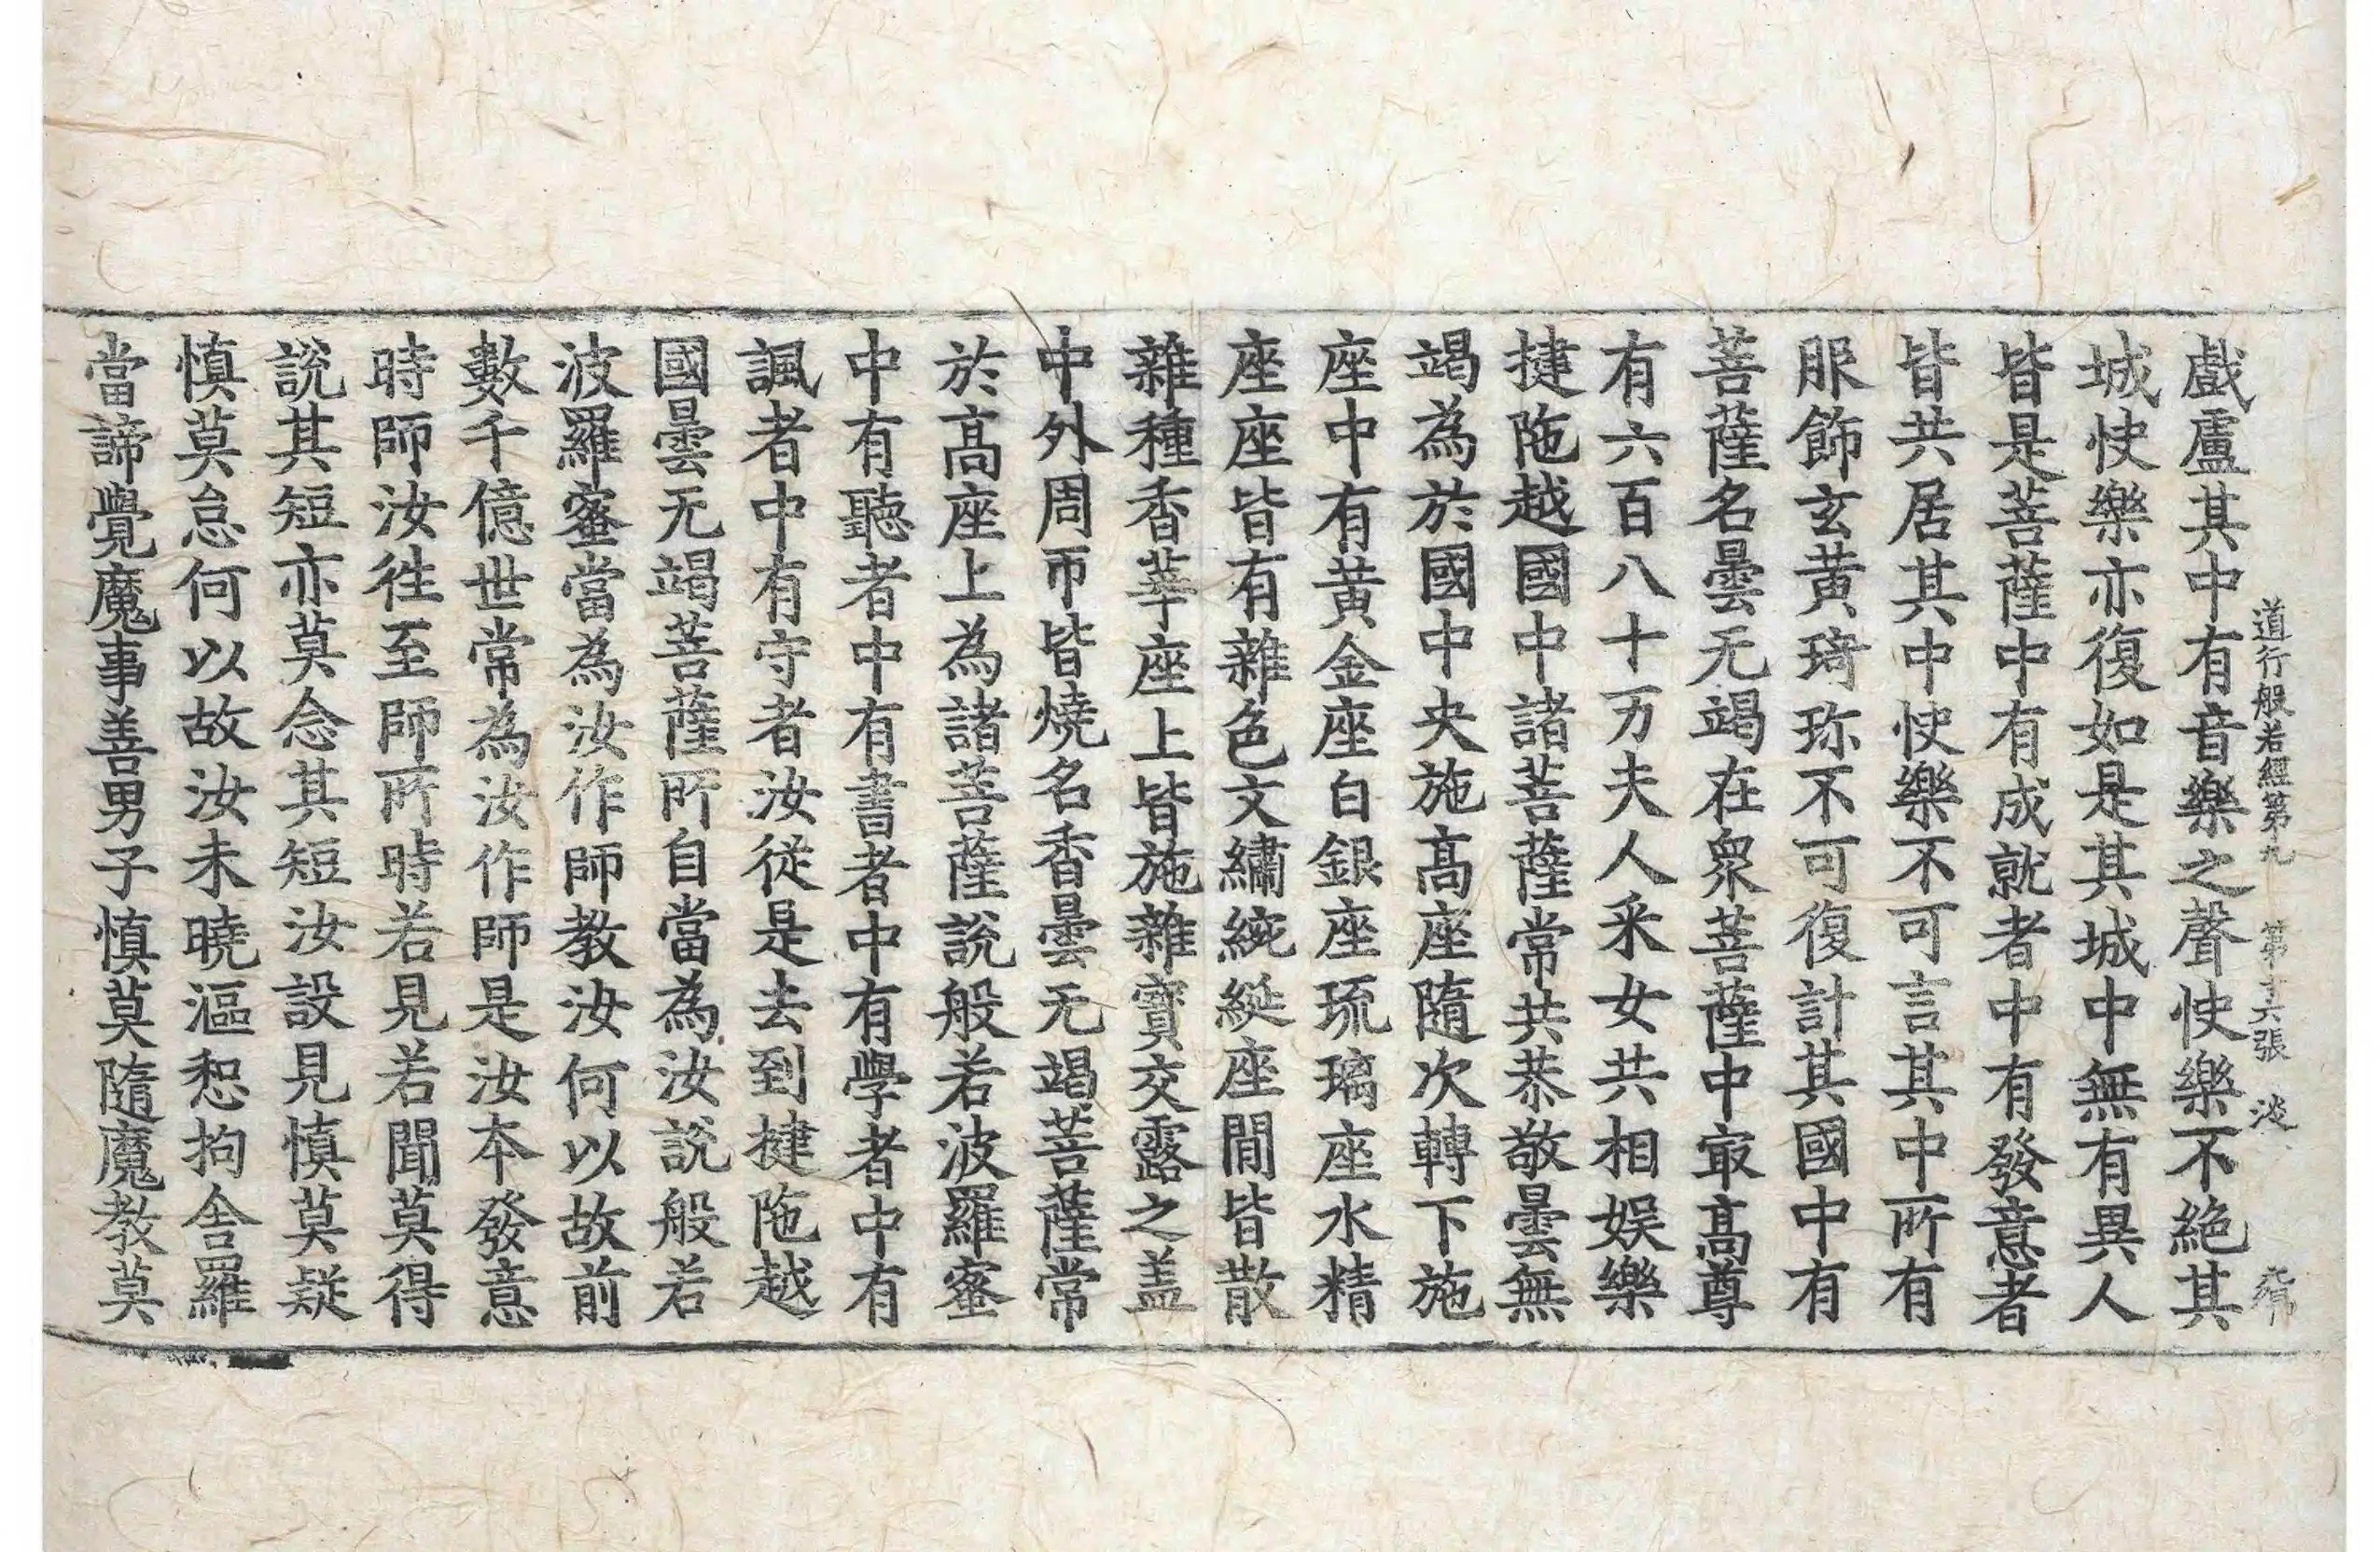 道行般若經第九 第十六張 淡
戲盧其中有音樂之聲快樂不絕其
城快樂亦復如是其城中無有異人
皆是菩薩中有成就者中有發意者
皆共居其中快樂不可言其中所有
服飾玄黃琦珎不可復計其國中有
菩薩名曇无竭在衆菩薩中㝡高尊
有六百八十万夫人采女共相娛樂
揵陁越國中諸菩薩常共恭敬曇無
竭為於國中央施高座隨次轉下施
座中有黃金座白銀座琉璃座水精
座座皆有雜色文繡綩綖座間皆散
雜種香華座上皆施雜寶交露之盖
中外周帀皆燒名香曇无竭菩薩常
於高座上為諸菩薩說般若波羅蜜
中有聽者中有書者中有學者中有
諷者中有守者汝從是去到揵陁越
國曇无竭菩薩所自當為汝說般若
波羅蜜當為汝作師教汝何以故前
數千億世常為汝作師是汝本發意
時師汝徃至師所時若見若聞莫得
說其短亦莫念其短汝設見慎莫疑
慎莫怠何以故汝未曉漚惒拘舍羅
當諦覺魔事善男子慎莫隨魔教莫